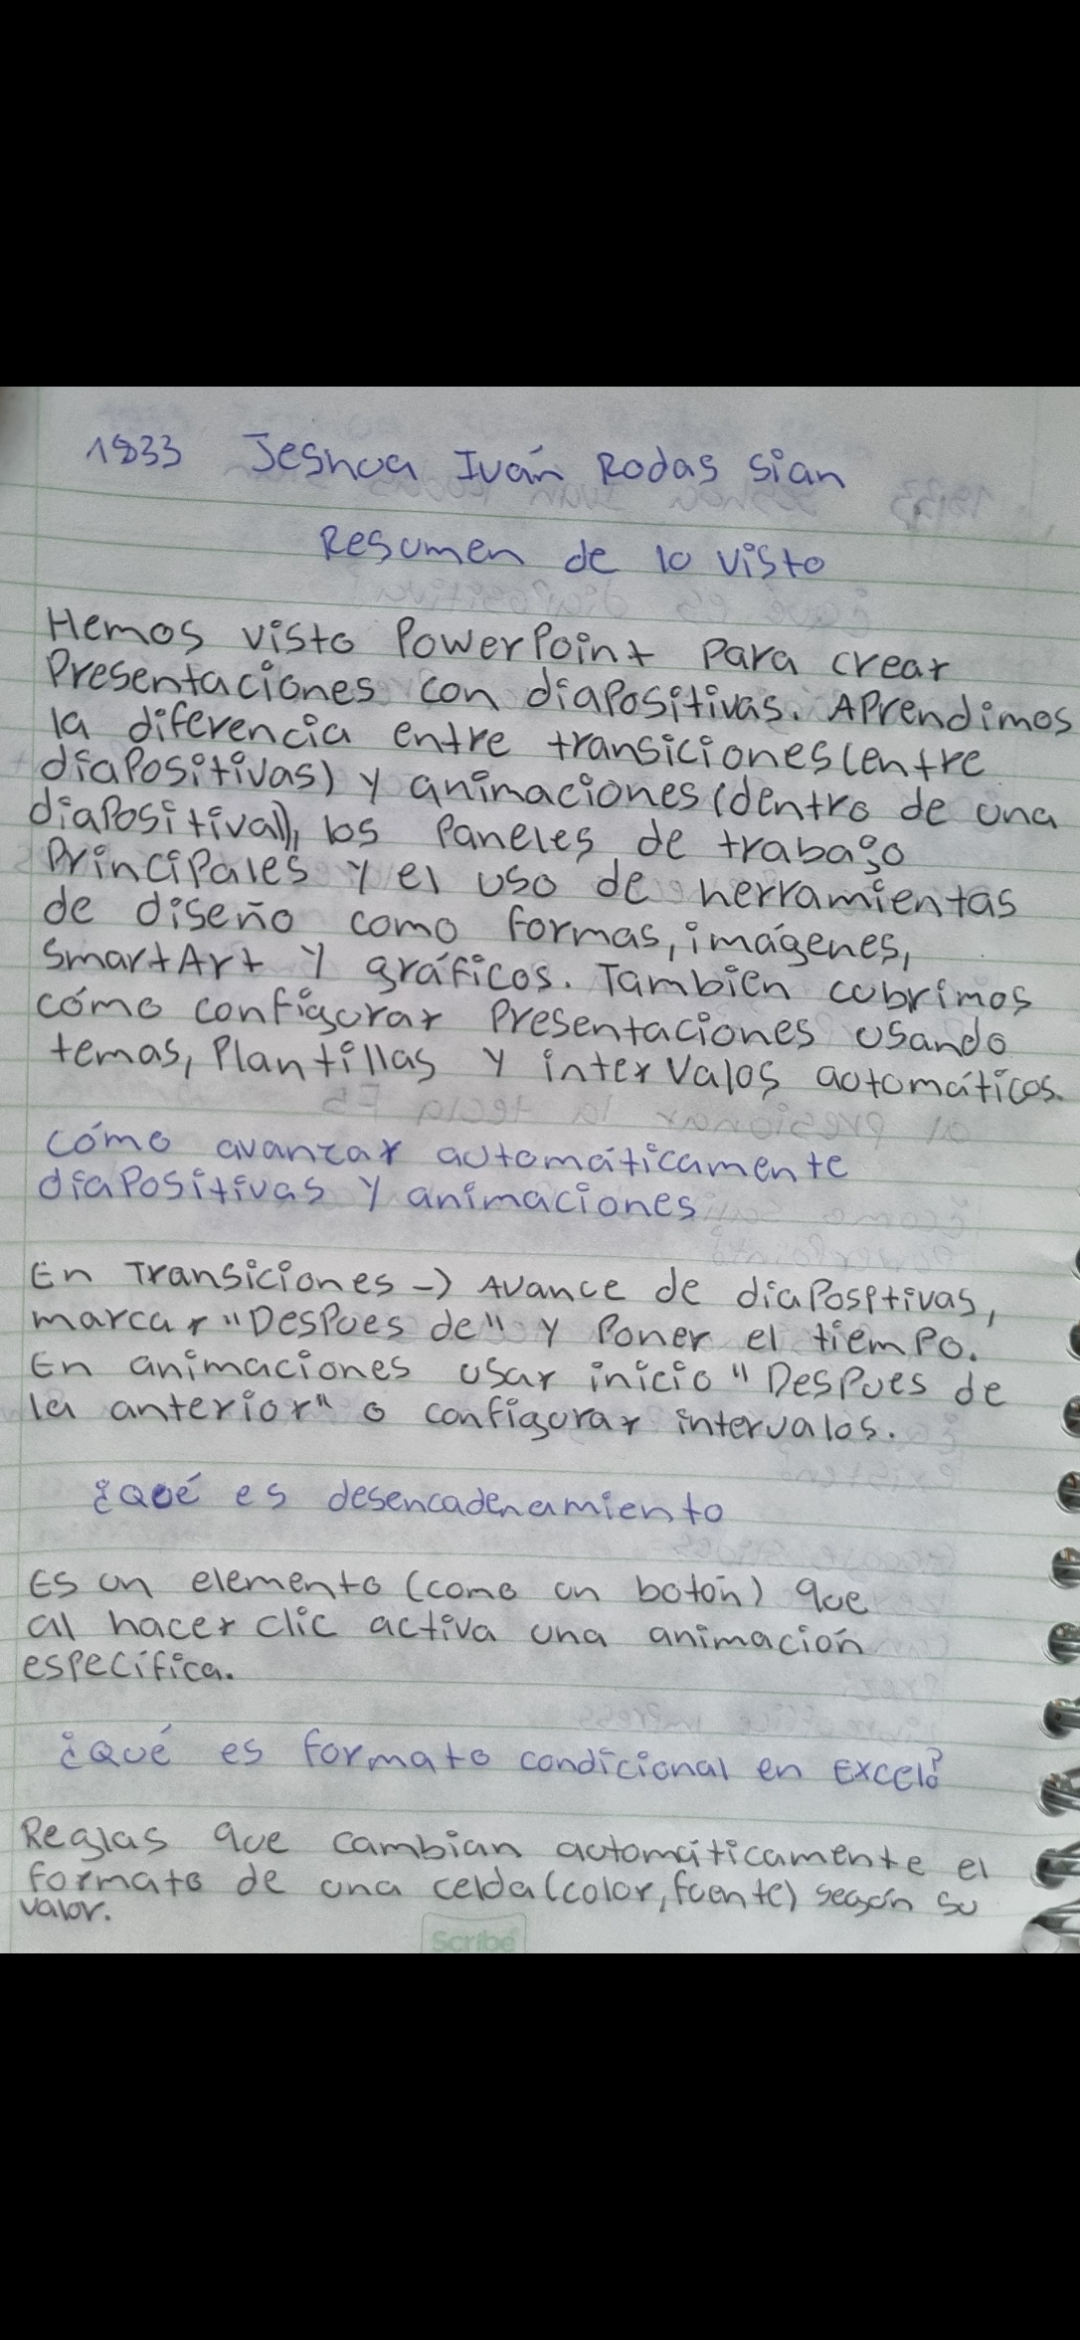 1833 Jeshua Iván Rodas Sian
Resumen de lo visto
Hemos visto PowerPoint para crear
presentaciones con diapositivas. Aprendimos
la diferencia entre transiciones (entre
diapositivas) y animaciones (dentro de una
diapositiva), los paneles de trabajo
principales y el uso de herramientas
de diseño como formas, imágenes,
SmartArt y gráficos. Tambien cubrimos
cómo configurar presentaciones usando
temas, plantillas y intervalos automáticos.
Cómo avanzar automáticamente
diapositivas y animaciones
En Transiciones -> Avance de diapositivas,
marcar "Despues de" y poner el tiempo.
En animaciones usar inicio "Despues de
la anterior" o configurar intervalos.
¿Qué es desencadenamiento
Es un elemento (como un botón) que
al hacer clic activa una animación
específica.
¿Qué es formato condicional en Excel?
Reglas que cambian automáticamente el
formato de una celda (color, fuente) según su
valor.
Scribe